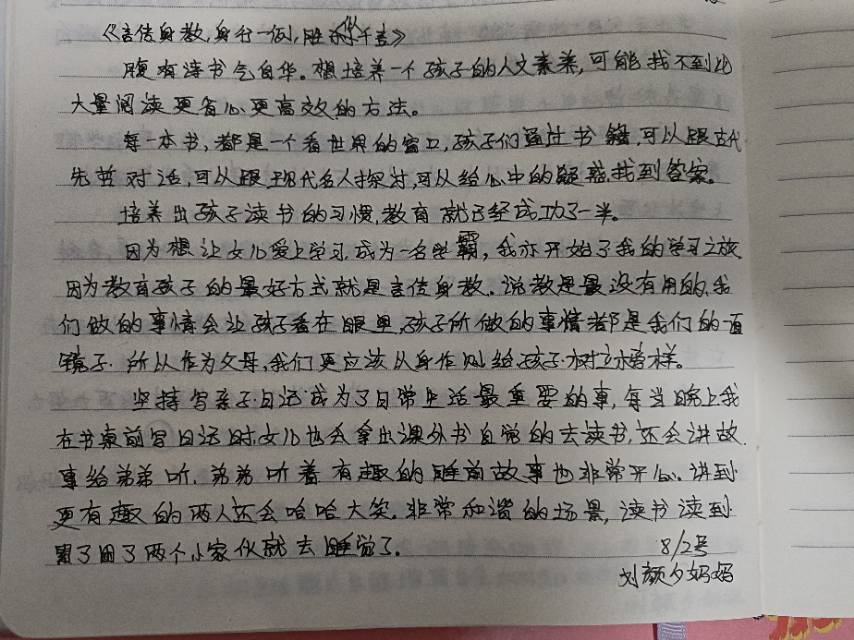 《言传身教,身行一例,胜似千言》
腹有诗书气自华。想培养一个孩子的人文素养,可能找不到比
大量阅读更省心更高效的方法。
每一本书,都是一个看世界的窗口,孩子们通过书籍,可以跟古代
先哲对话,可以跟现代名人探讨,可以给心中的疑惑找到答案。
培养出孩子读书的习惯,教育就已经成功了一半。
因为想让女儿爱上学习,成为一名学霸,我亦开始了我的学习之旅
因为教育孩子的最好方式就是言传身教,说教是最没有用的,我
们做的事情会让孩子看在眼里,孩子所做的事情都是我们的一面
镜子.所以作为父母,我们更应该以身作则给孩子树立榜样。
坚持写亲子日记成为了日常生活最重要的事,每当晚上我
在书桌前写日记时,女儿也会拿出课外书自觉的去读书,还会讲故
事给弟弟听.弟弟听着有趣的睡前故事也非常开心.讲到
更有趣的两人还会哈哈大笑.非常和谐的场景,读书读到
累了困了两个小家伙就去睡觉了.
8/2号
刘颜夕妈妈